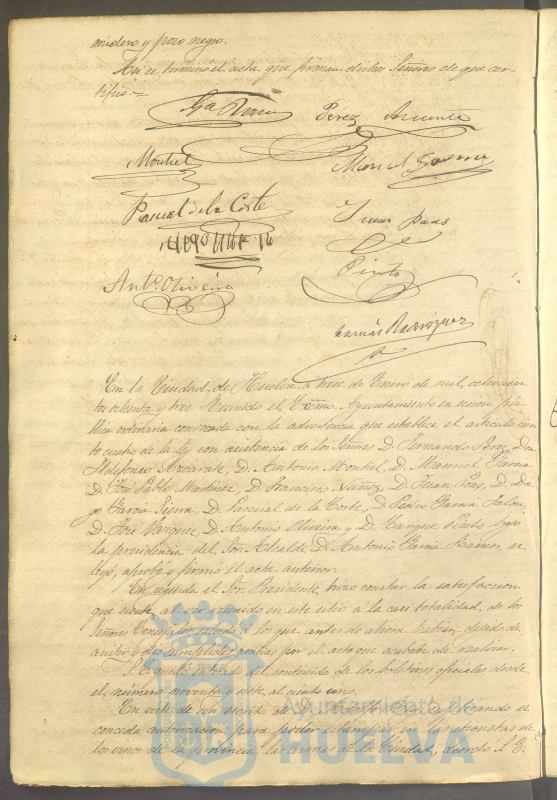 miadero y pozo negro.
Así se terminó el acta que firman dichos Señores de que cer-
tifico.=
Perez Azcarate
Montiel
Manuel Garcia
Pascual de la Corte
Juan Poas
Pinto
Antº Oliveira
Rodriguez
En la Ciudad de Huelva a tres de Enero de mil ochocien
tos ochenta y tres reunido el Excmo. Ayuntamiento en sesion pú-
blica ordinaria convocada con la advertencia que establece el articulo cien
to cuatro de la ley con asistencia de los Señores D. Fernando Perez, Don
Ildefonso Azcarate, D. Antonio Montiel, D. Manuel Garcia
D. José Pablo Martinez, D. Francisco Nuñez, D. Juan Poas, D. Die
go Garcia Sierra, D. Pascual de la Corte, D. Pedro Garcia Jalon,
D. José Vazquez, D. Antonio Oliveira y D. Enrique Pinto bajo
la presidencia del Sor. Alcalde D. Antonio Garcia Ramos, se
leyó, aprobó y firmó el acta anterior.
En seguida el Sor. Presidente, hizo constar la satisfaccion
que siente al ver reunido en este sitio a la casi totalidad de los
Señores Concejales a los que antes de ahora habian dejado de
asistir y dió por el acto que acababa de realizar.
Se quedó enterado del contenido de los boletines oficiales desde
el número noventa y siete al ciento uno.
En vista de un escrito de D. se
conceda autorizacion para poder estampar en las etiquetas de
los vinos de la provincia las armas de la Ciudad, acordó S. E.
Ayuntamiento de
HUELVA